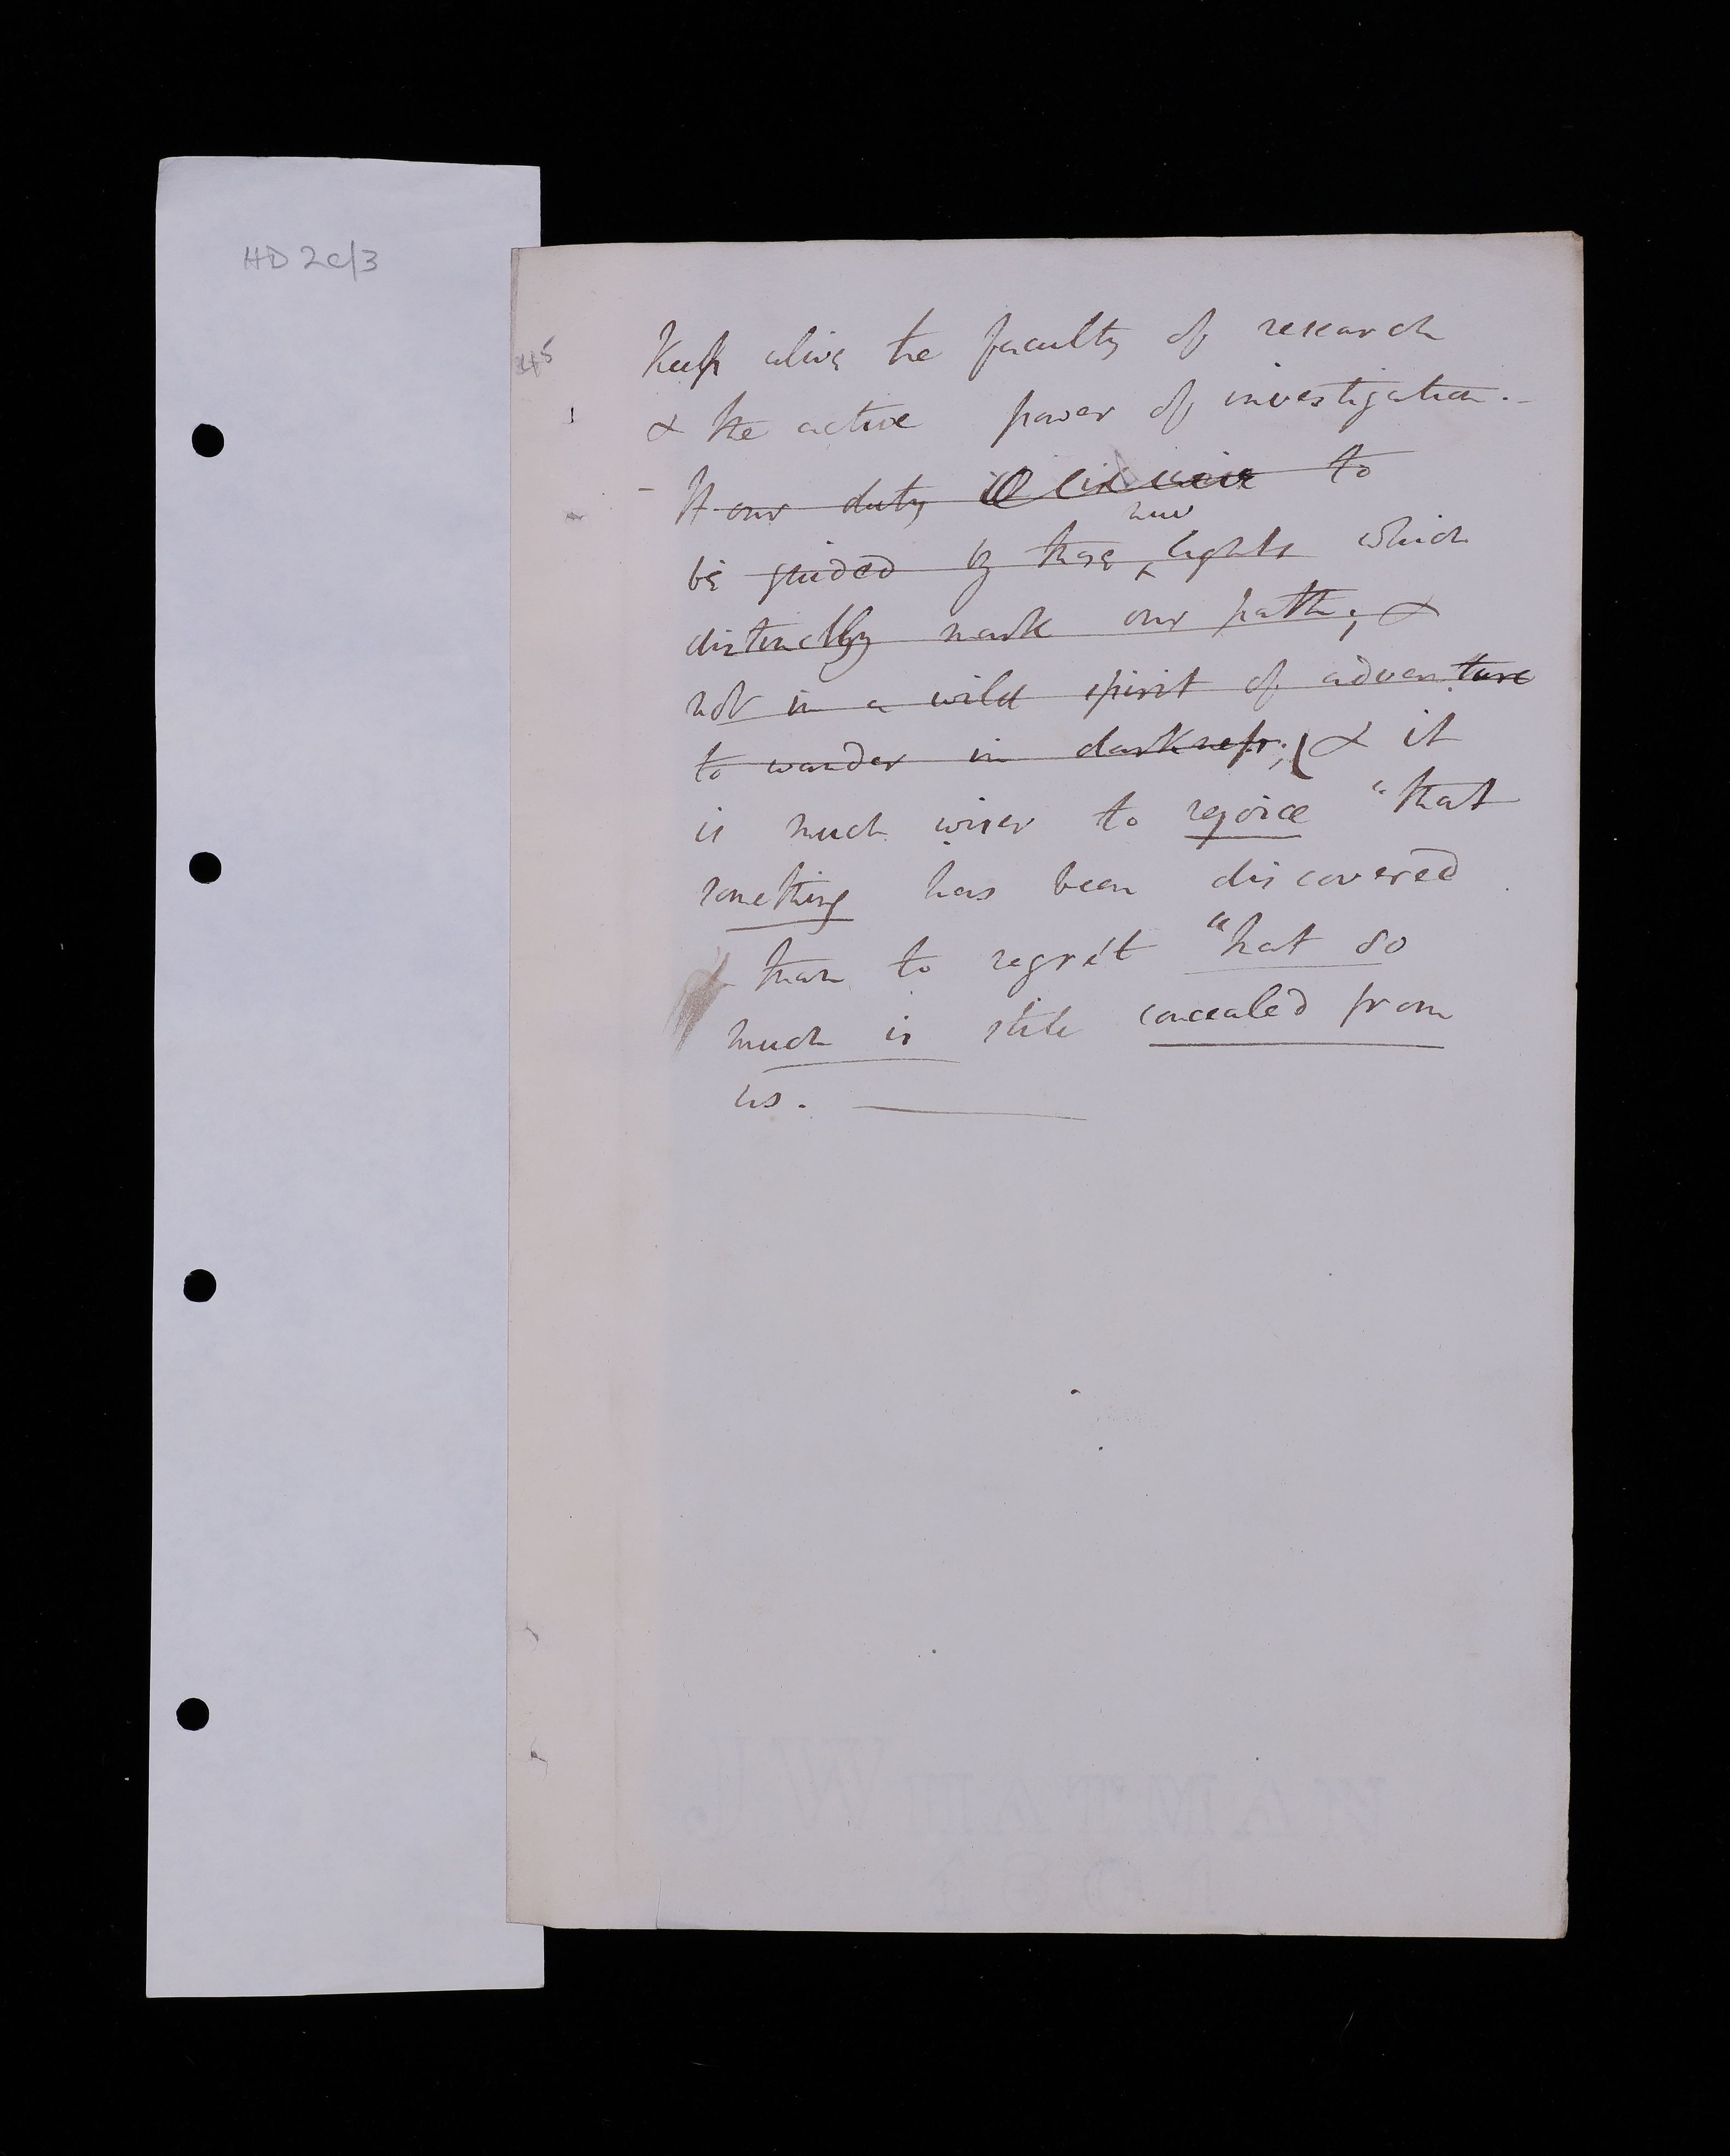 HD 2c/3
345
Keep alive the faculty of research
& the active power of investigation. -
- It our duty to
new
be guided by those lights which
distinctly mark our path; &
not in a wild spirit of adventure
to wander in darkness; & it
is much wiser to rejoice "that
something has been discovered
than to regret "that so
much is still concealed from
us.
J WHATMAN
1801